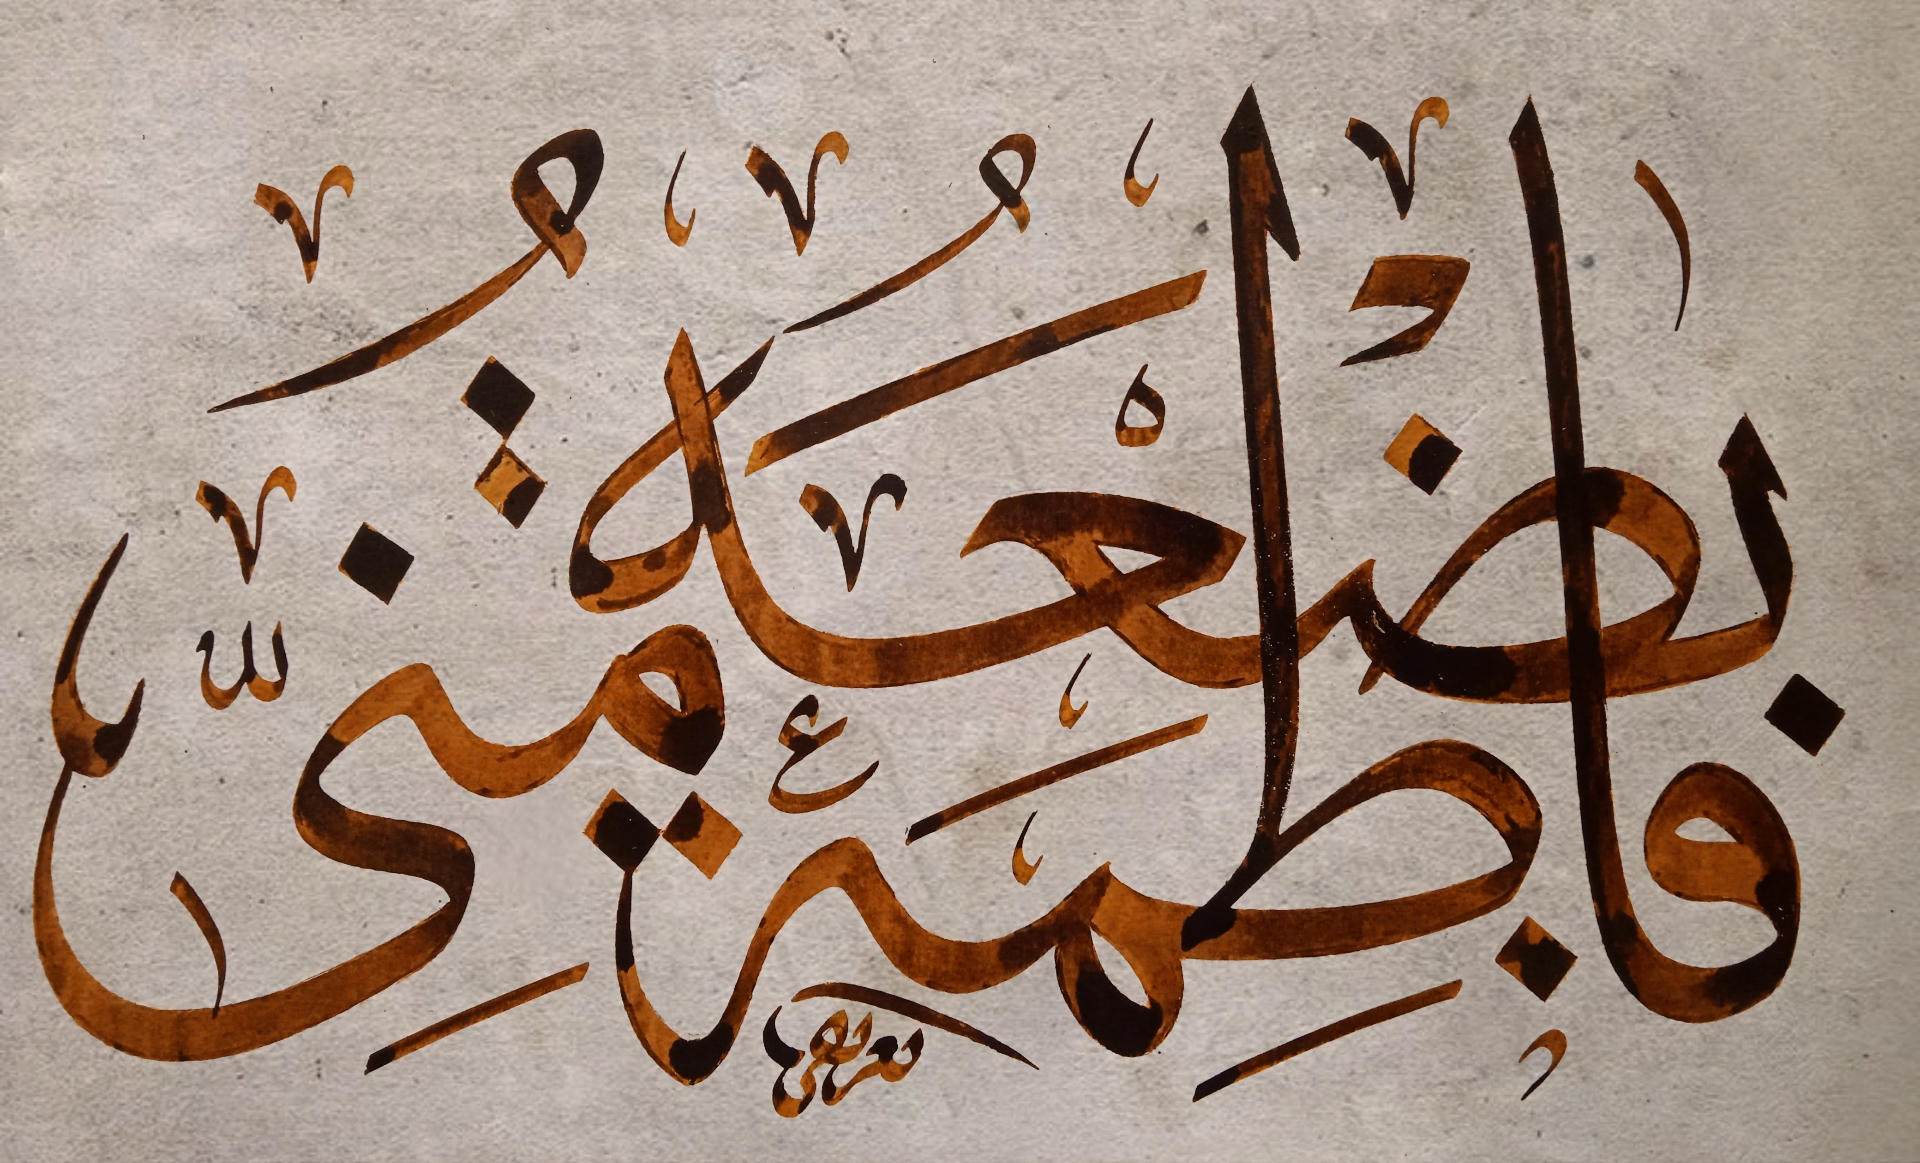 فاطِمَةُ بِضْعَةٌ مِنِّي